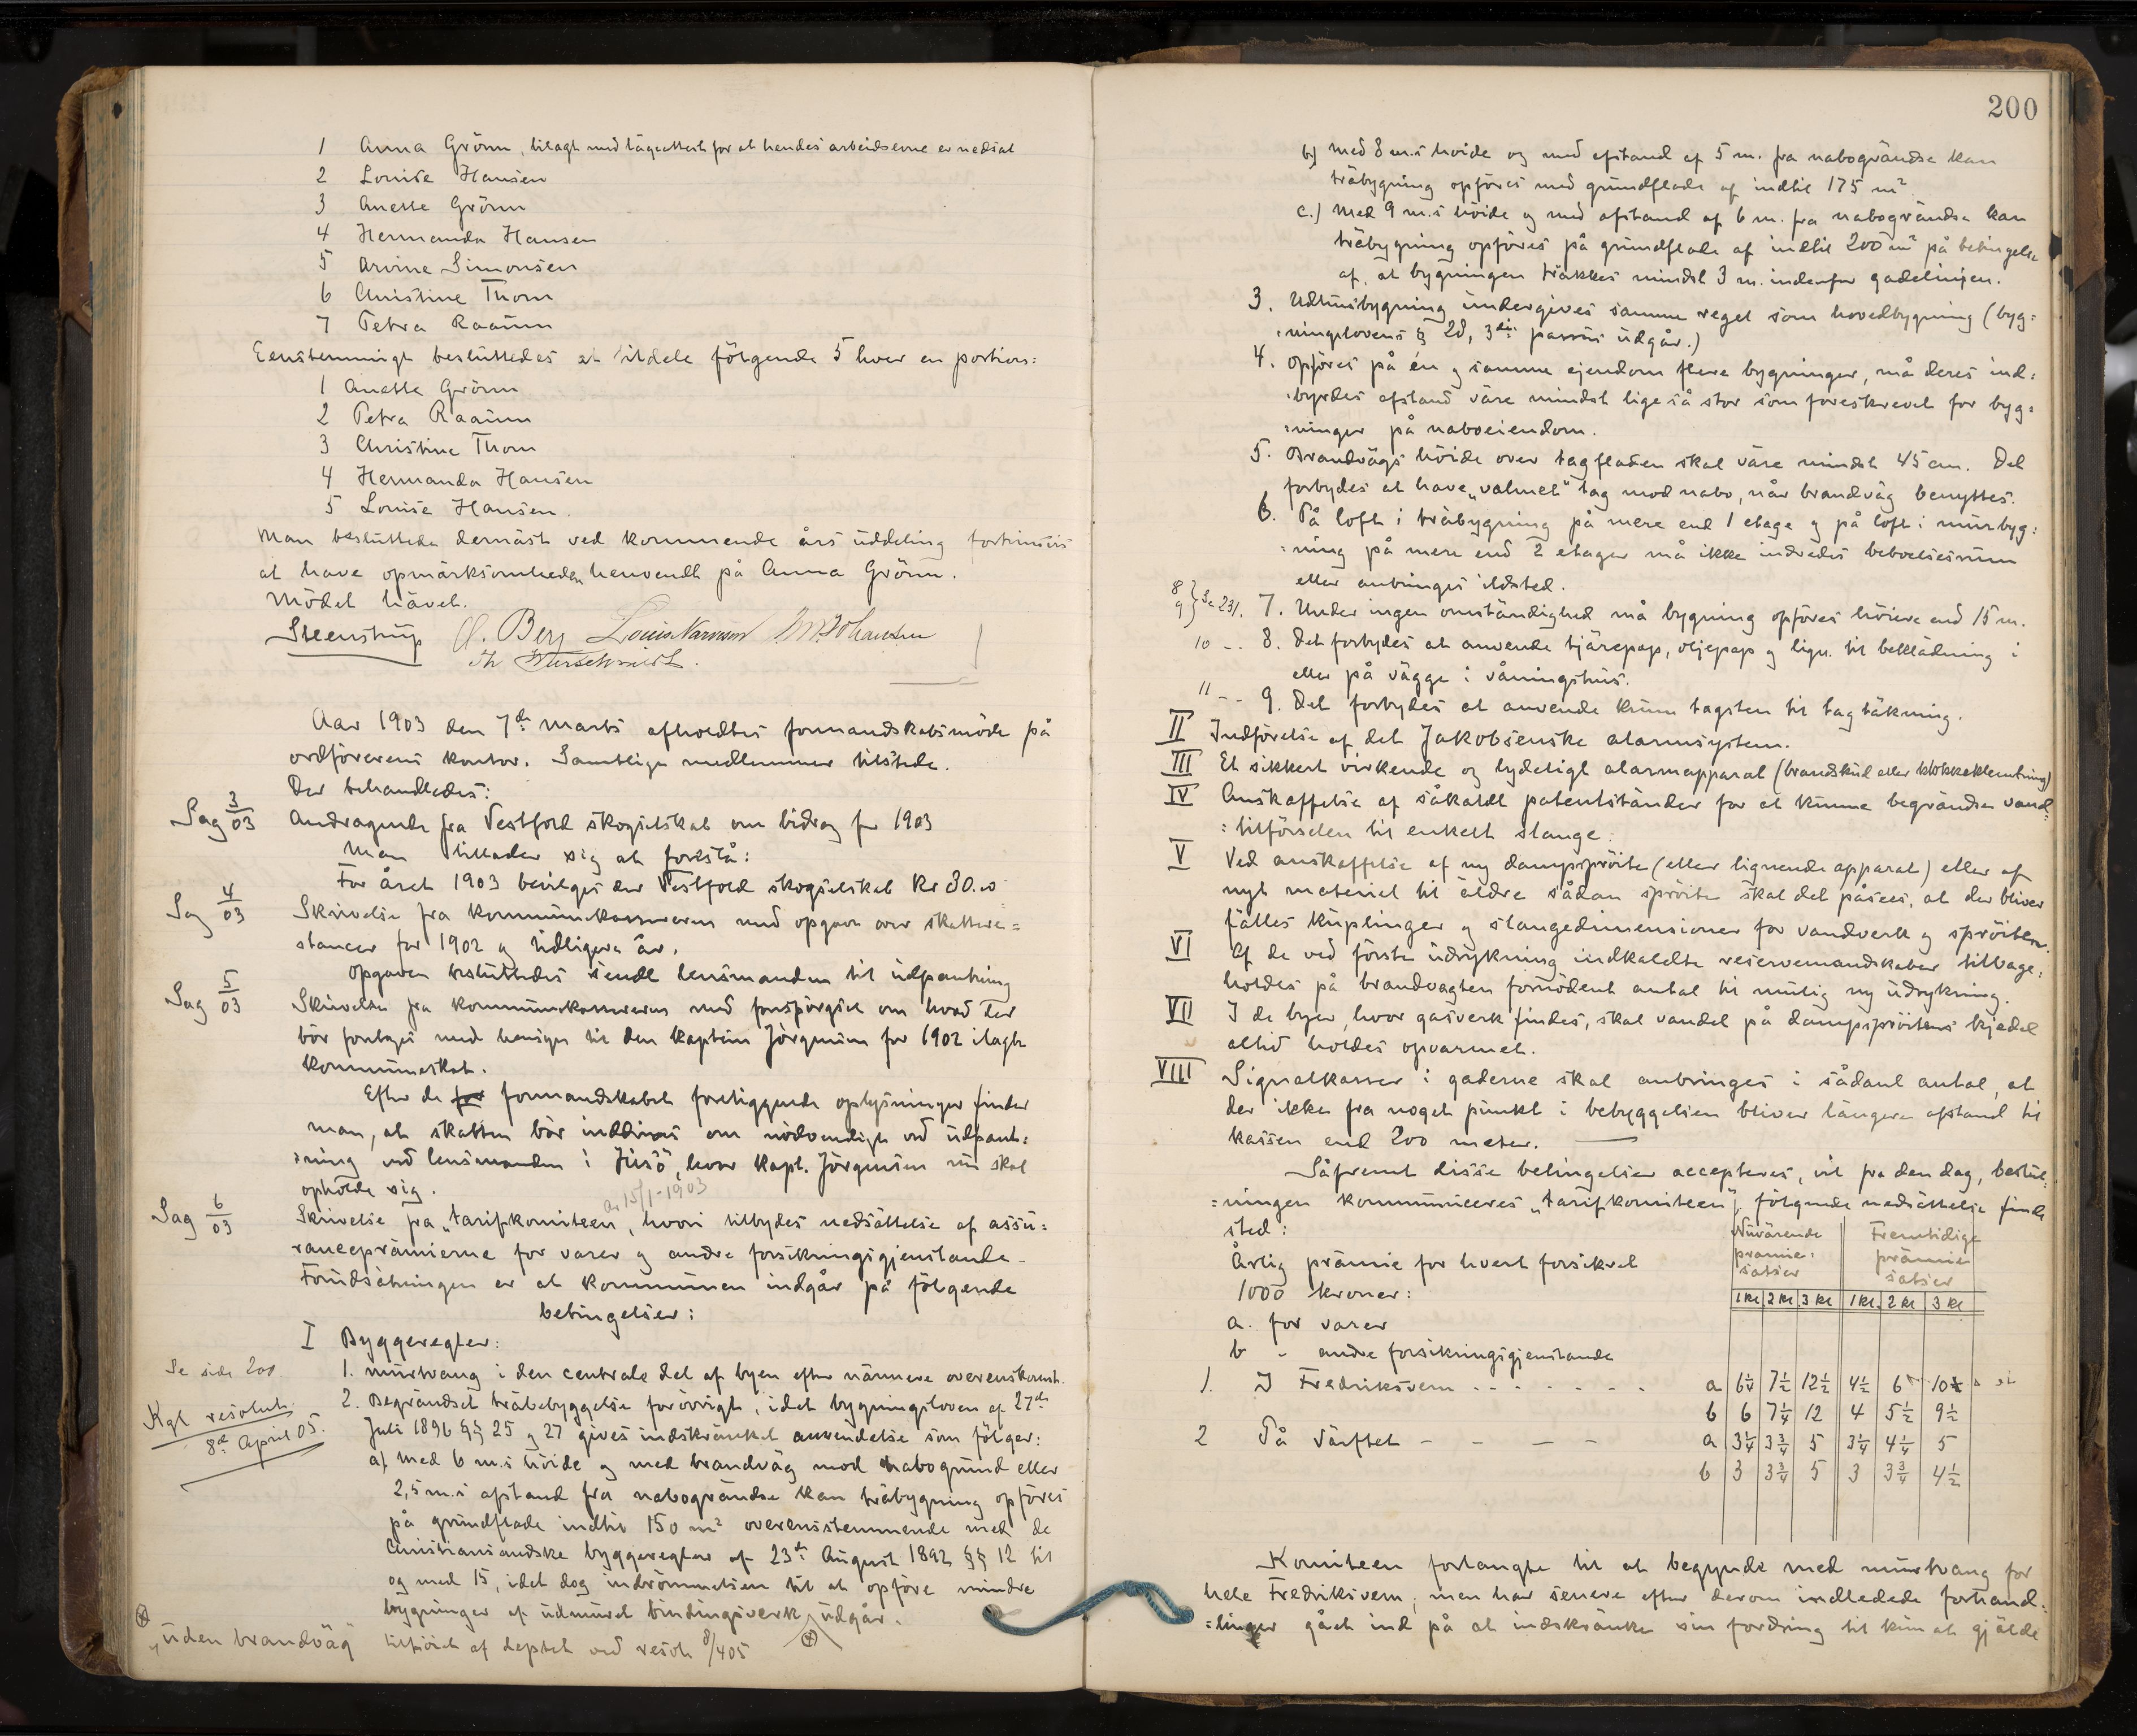 1 Anna Grönn, tilagt med lägeattest for at hendes arbeidsevne er nedsat
2 Louise Hansen
3 Anette Grönn
4 Hermanda Hansen
5 Arvine Simonsen
6 Christine Thorn
7 Petra Raaum
Eenstemmigt besluttedes at tildele fölgende 5 hver en portion:
1 Anette Grönn
2 Petra Raaum
3 Christine Thorn
4 Hermanda Hansen
5 Louise Hansen.
Man besluttede dernäst ved kommende års uddeling fortrinsvis
at have opmärksomheden henvendt på Anna Grönn.
Mödet hävet.
Steenstrup O. Berg Louis Narvesen
Aar 1903 den 7de marts afholdtes formandskabsmöde på
ordförerens kontor. Samtlige medlemmer tilstede.
Der behandledes:
Sag 3/03 Andragende fra Vestfold skogselskab om bidrag for 1903
Man tillader sig at foreslå:
For året 1903 bevilges der Vestfold skogselskab Kr 30.00
Sag 4/03 Skrivelse fra kommunekassereren med opgave over skattere=
stancer for 1902 og tidligere år.
Opgaven besluttedes sendt lensmanden til udpantning
Sag 5/03 Skrivelse fra kommunekassereren med forespörgsel om hvad der
bör foretages med hensyn til den kaptein Jörgensen for 1902 ilagte
kommuneskat.
Efter de for formandskabet foreliggende oplysninger finder
man, at skatten bör inddrives om nödvendigt ved udpant=
=ning ved lensmanden i Jusö, hvor kapt. Jörgensen nu skal
opholde sig.
a. 15/1-1903
Sag 6/03 Skrivelse fra „tarifkomiteen, hvori tilbydes nedsättelse af assu=
ranceprämierne for varer og andre forsikringsgjenstande.
Forudsätningen er at kommunen indgår på fölgende
betingelser:
I Byggeregler:
Se side 200. 1. murtvang i den centrale del af byen efter närmere overenskomst.
2. Begrändset träbebyggelse forövrigt, idet bygningsloven af 27de
Kgl resolut. Juli 1896 §§ 25 og 27 gives indskränket anvendelse som fölger:
8de April 05.
a) med 6 m.s höide og med brandväg mod nabogrund eller
2,5 m.s afstand fra nabogrändse kan träbygning opföres
på grundflade indtil 150 m² overensstemmende med de
Christiansandske byggeregler af 23de August 1892 §§ 12 til
og med 15, idet dog indrömmelsen til at opföre mindre
bygninger af udmuret bindingsverk udgår.
uden brandväg tilföiet af deptet ved resol. 8/405
200
b) med 8 m.s höide og med afstand af 5 m. fra nabogrändse kan
träbygning opföres med grundflade af indtil 175 m²
c.) Med 9 m.s höide og med afstand af 6 m. fra nabogrändse kan
träbygning opföres på grundflade af indtil 200 m² på betingelse
af, at bygningen träkkes mindst 3 m. indenfor gadelinjen.
3. Udhusbygning undergives samme regel som hovedbygning (byg=
=ningslovens § 28, 3die passus udgår.)
4. Opföres på én og samme ejendom flere bygninger, må deres ind=
=byrdes afstand väre mindst lige så stor som foreskrevet for byg=
=ninger på naboeiendom.
5. Brandvägs höide over tagfladen skal väre mindst 45 cm. Det
forbydes at have „valmet" tag mod nabo, når brandväg benyttes.
6. På loft i träbygning på mere end 1 etage og på loft i murbyg=
=ning på mere end 2 etager må ikke indredes beboelsesrum
eller anbringes ildsted.
8 9 } Se 231. 7. Under ingen omständighed må bygning opföres höiere end 15 m.
10 - - 8. Det forbydes at anvende tjärepap, oljepap og lign. til beklädning i
eller på vägge i våningshus.
11 - - 9. Det forbydes at anvende krum tagsten til tagtäkning.
II Indförelse af det Jakobsenske alarmsystem.
III Et sikkert virkende og lydeligt alarmapparat (brandskud eller klokkeklemtning)
IV Anskaffelse af såkaldt patentständer for at kunne begrändse vand=
=tilförselen til enkelt slange.
V Ved anskaffelse af ny dampspröite (eller lignende apparat) eller af
nyt materiel til äldre sådan spröite skal det påsees, at der bliver
fälles kuplinger og slangedimensioner for vandverk og spröiten.
VI Af de ved förste udrykning indkaldte reservemandskaber tilbage=
holdes på brandvagten fornödent antal til mulig ny udrykning.
VII I de byer, hvor gasverk findes, skal vandet på dampspröitens kjedel
altid holdes opvarmet.
VIII Signalkasser i gaderne skal anbringes i sådant antal, at
der ikke fra noget punkt i bebyggelsen bliver längere afstand til
kassen end 200 meter.
Såfremt disse betingelser accepteres, vil fra den dag, beslut=
=ningen kommuniceres „tarifkomiteen", fölgende nedsättelse finde
sted:
Nuvärende prämie= satser Fremtidige prämie satser
Årlig prämie for hvert forsikret
1000 kroner:
1 kl 2 kl 3 kl 1 kl. 2 kl 3 kl
a. for varer
b - andre forsikringsgjenstande
1. I Fredriksvern - - - - - - a 6¼ 7½ 12½ 4½ 6
b 6 7¼ 12 4 5½ 9½
2 På Värftet - - - - a 3¼ 3¾ 5 3¼ 4¼ 5
b 3 3¾ 5 3 3¾ 4½
Komiteen forlangte til at begynde med murtvang for
hele Fredriksvern; men har senere efter derom indledede forhand=
=linger gået ind på at indskränke sin fordring til kun at gjälde